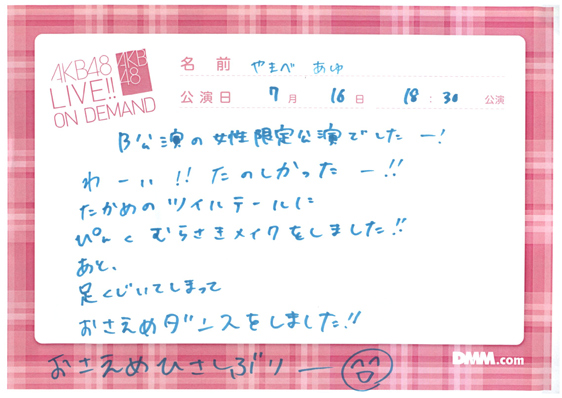 AKB48
LIVE!!
ON DEMAND
AKB
48
名前 やまべ あゆ
公演日 7月 16日 18:30 公演
B公演の女性限定公演でしたー!
わーい!! たのしかったー!!
たかめのツイルテールに
ぴんくむらさきメイクをしました!!
あと、
足くじいてしまって
おさえめダンスをしました!!
おさえめひさしぶりー
DMM.com